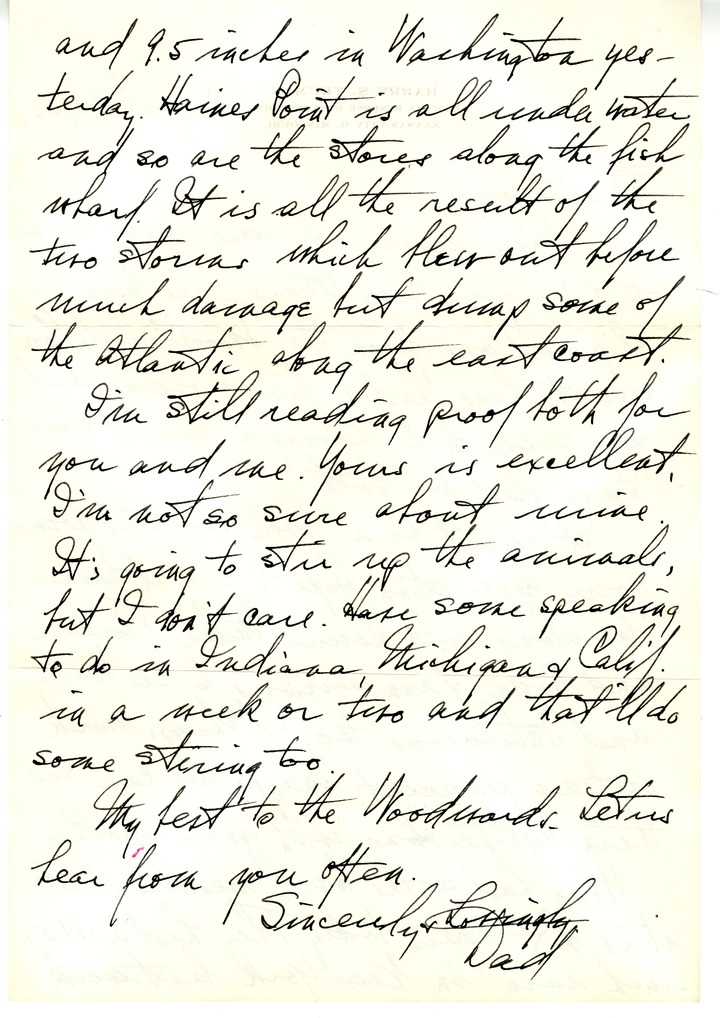 and 9.5 inches in Washington yes-
terday. Haines Point is all under water
and so are the stores along the fish
wharf. It is all the result of the
two storms which blew out before
much damage but dump some of
the Atlantic along the east coast.
I'm still reading proof both for
you and me. Yours is excellent,
I'm not so sure about mine.
It's going to stir up the animals,
but I don't care. Have some speaking
to do in Indiana, Michigan & Calif.
in a week or two and that'll do
some stiring too.
My best to the Woodwards. Let us
hear from you often.
Sincerely & Lovingly,
Dad